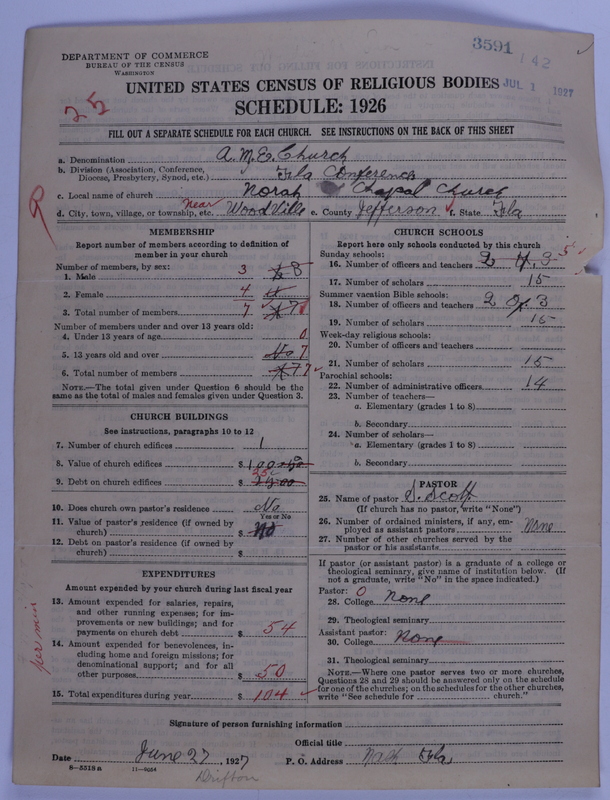 DEPARTMENT OF COMMERCE
BUREAU OF THE CENSUS
WASHINGTON
3591
142
JUL 1 1927
UNITED STATES CENSUS OF RELIGIOUS BODIES
SCHEDULE: 1926
25
FILL OUT A SEPARATE SCHEDULE FOR EACH CHURCH. SEE INSTRUCTIONS ON THE BACK OF THIS SHEET
a. Denomination A.M.E. Church
b. Division (Association, Conference, Diocese, Presbytery, Synod, etc.) Fla Conference
c. Local name of church Norah Chapal Church
d. City, town, village, or township, etc. Near WoodVille e. County Jefferson f. State Fla
MEMBERSHIP
Report number of members according to definition of
member in your church
Number of members, by sex:
1. Male 3 8
2. Female 4
3. Total number of members 7
Number of members under and over 13 years old:
4. Under 13 years of age 0
5. 13 years old and over 7
6. Total number of members 7
NOTE.—The total given under Question 6 should be the
same as the total of males and females given under Question 3.
CHURCH BUILDINGS
See instructions, paragraphs 10 to 12
7. Number of church edifices 1
8. Value of church edifices $ 100
9. Debt on church edifices $
10. Does church own pastor's residence No
Yes or No
11. Value of pastor's residence (if owned by
church) $ No
12. Debt on pastor's residence (if owned by
church) $
EXPENDITURES
Amount expended by your church during last fiscal year
13. Amount expended for salaries, repairs,
and other running expenses; for im-
provements or new buildings; and for
payments on church debt $ 54
14. Amount expended for benevolences, in-
cluding home and foreign missions; for
denominational support; and for all
other purposes $ 50
15. Total expenditures during year $ 104
per min
CHURCH SCHOOLS
Report here only schools conducted by this church
Sunday schools:
16. Number of officers and teachers 2 3 5
17. Number of scholars 15
Summer vacation Bible schools:
18. Number of officers and teachers 2 3
19. Number of scholars 15
Week-day religious schools:
20. Number of officers and teachers
21. Number of scholars 15
Parochial schools:
22. Number of administrative officers 14
23. Number of teachers—
a. Elementary (grades 1 to 8)
b. Secondary
24. Number of scholars—
a. Elementary (grades 1 to 8)
b. Secondary
PASTOR
25. Name of pastor S. Scott
(If church has no pastor, write "None")
26. Number of ordained ministers, if any, em-
ployed as assistant pastors None
27. Number of other churches served by the
pastor or his assistants
If pastor (or assistant pastor) is a graduate of a college or
theological seminary, give name of institution below. (If
not a graduate, write "No" in the space indicated.)
Pastor: 0
28. College None
29. Theological seminary
Assistant pastor:
30. College None
31. Theological seminary
NOTE.—Where one pastor serves two or more churches,
Questions 28 and 29 should be answered only on the schedule
for one of the churches; on the schedules for the other churches,
write "See schedule for church."
Signature of person furnishing information
Official title
Date June 27 1927 P. O. Address Fla
8—5518 a 11—9054
Drifton